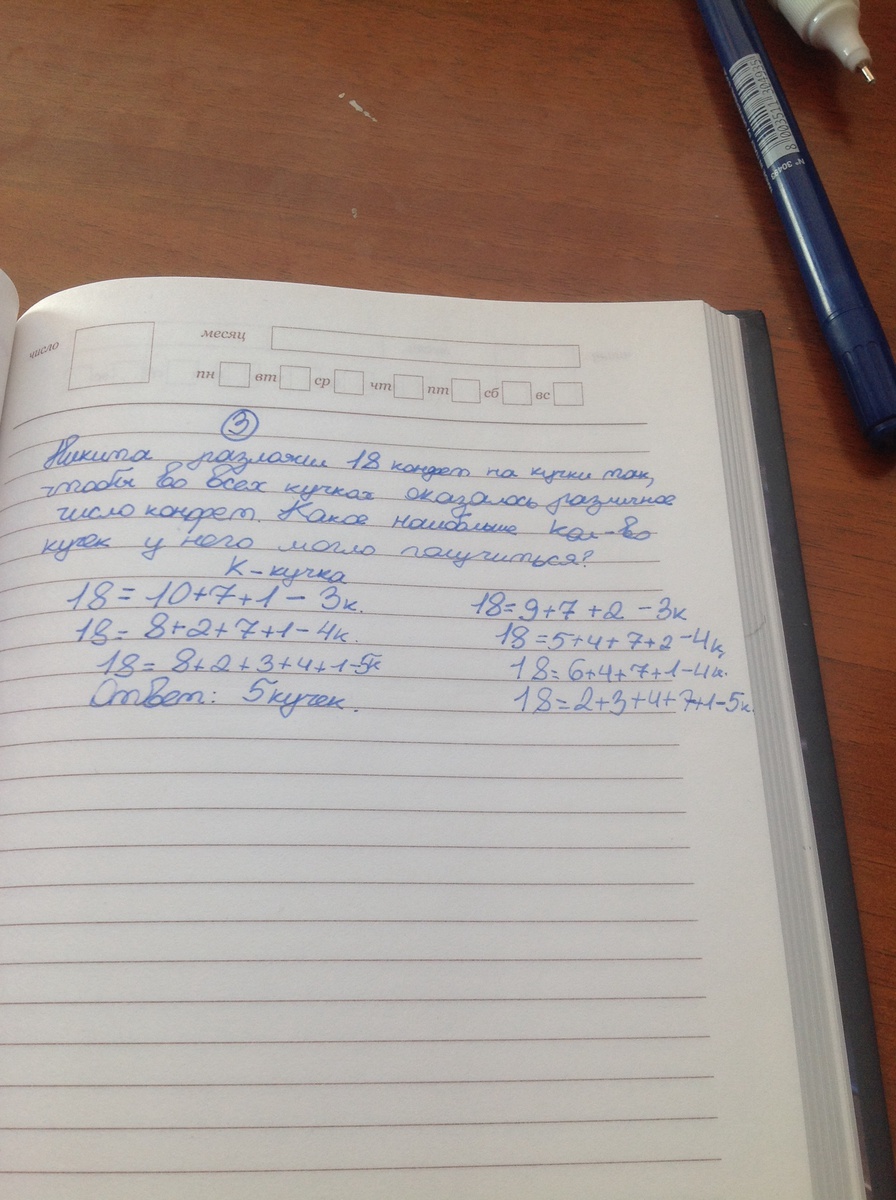 8 003511 301915
N° 30493
число
месяц
пн вт ср чт пт сб вс
3
Никита разложил 18 конфет на кучки так,
чтобы во всех кучках оказалось различное
число конфет. Какое наибольше кол-во
кучек у него могло получиться?
К-кучка
18 = 10+7+1 - 3к.
18 = 8+2+7+1 - 4к.
18 = 8+2+3+4+1-5к
Ответ: 5 кучек.
18=9+7+2 - 3к
18=5+4+7+2 -4к
18=6+4+7+1-4к.
18=2+3+4+7+1-5к.